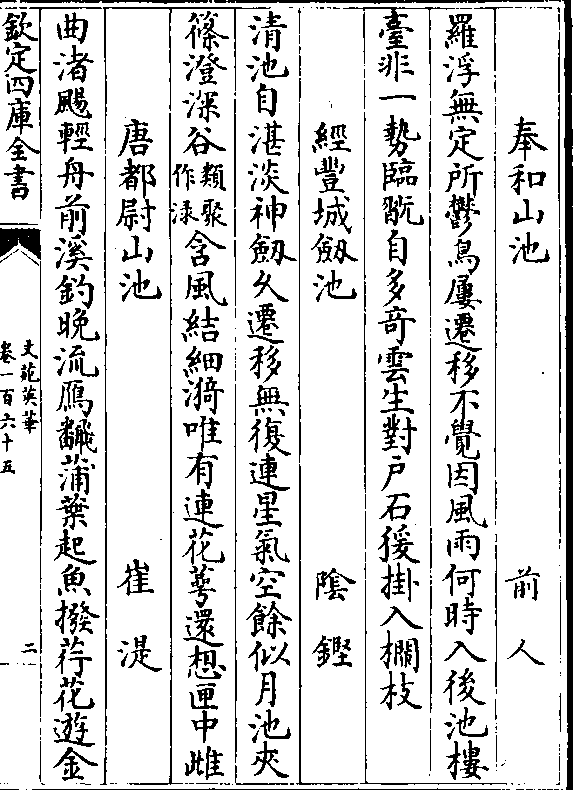 奉和山池 前人
羅浮無定所鬱島屢遷移不覺因風雨何時入後池樓
臺非一勢臨翫自多竒雲生對户石猨掛入櫩枝
經豐城劔池 隂鏗
清池自湛淡神劔乆遷移無復連星氣空餘似月池夾
篠澄深谷類聚作渌含風結細漪唯有連花萼還想匣中雌
唐都尉山池 崔湜
曲渚颺輕舟前溪釣晚流鴈飜蒲葉起魚撥荇花遊金
欽定四庫全書
文苑英華
卷一百六十五
二